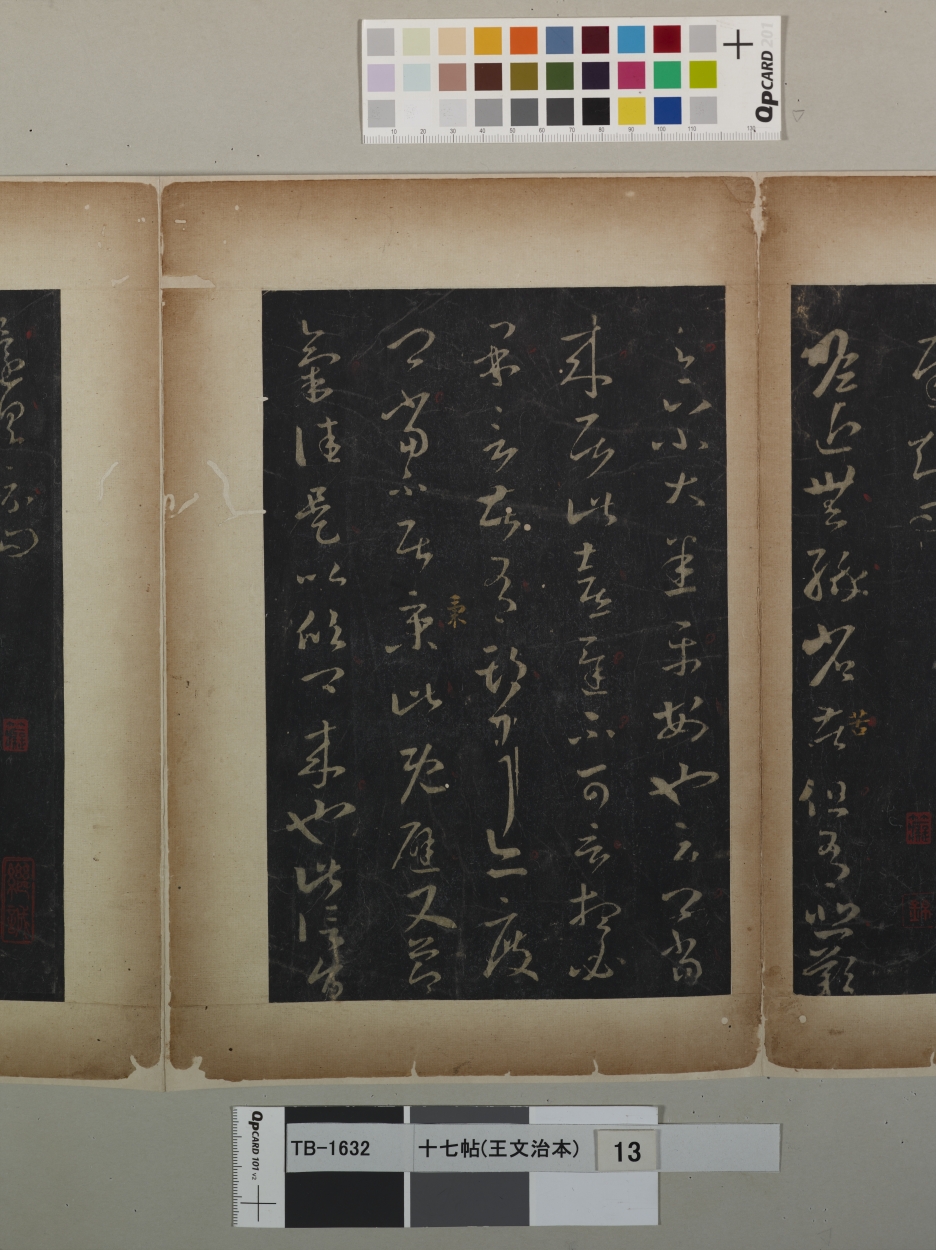 QPCARD 201
10 20 30 40 50 60 70 80 90 100 110 130
瞻近無緣省苦但有悲歎
苦
足下小大悉平安也云卿當
來居此喜遲不可言想必
果言苦有期耳亦度
卿當不居京此既避又節
氣佳是以欣卿來也此信旨
還具示問
QPCARD 101 v2
TB-1632
十七帖(王文治本)
13